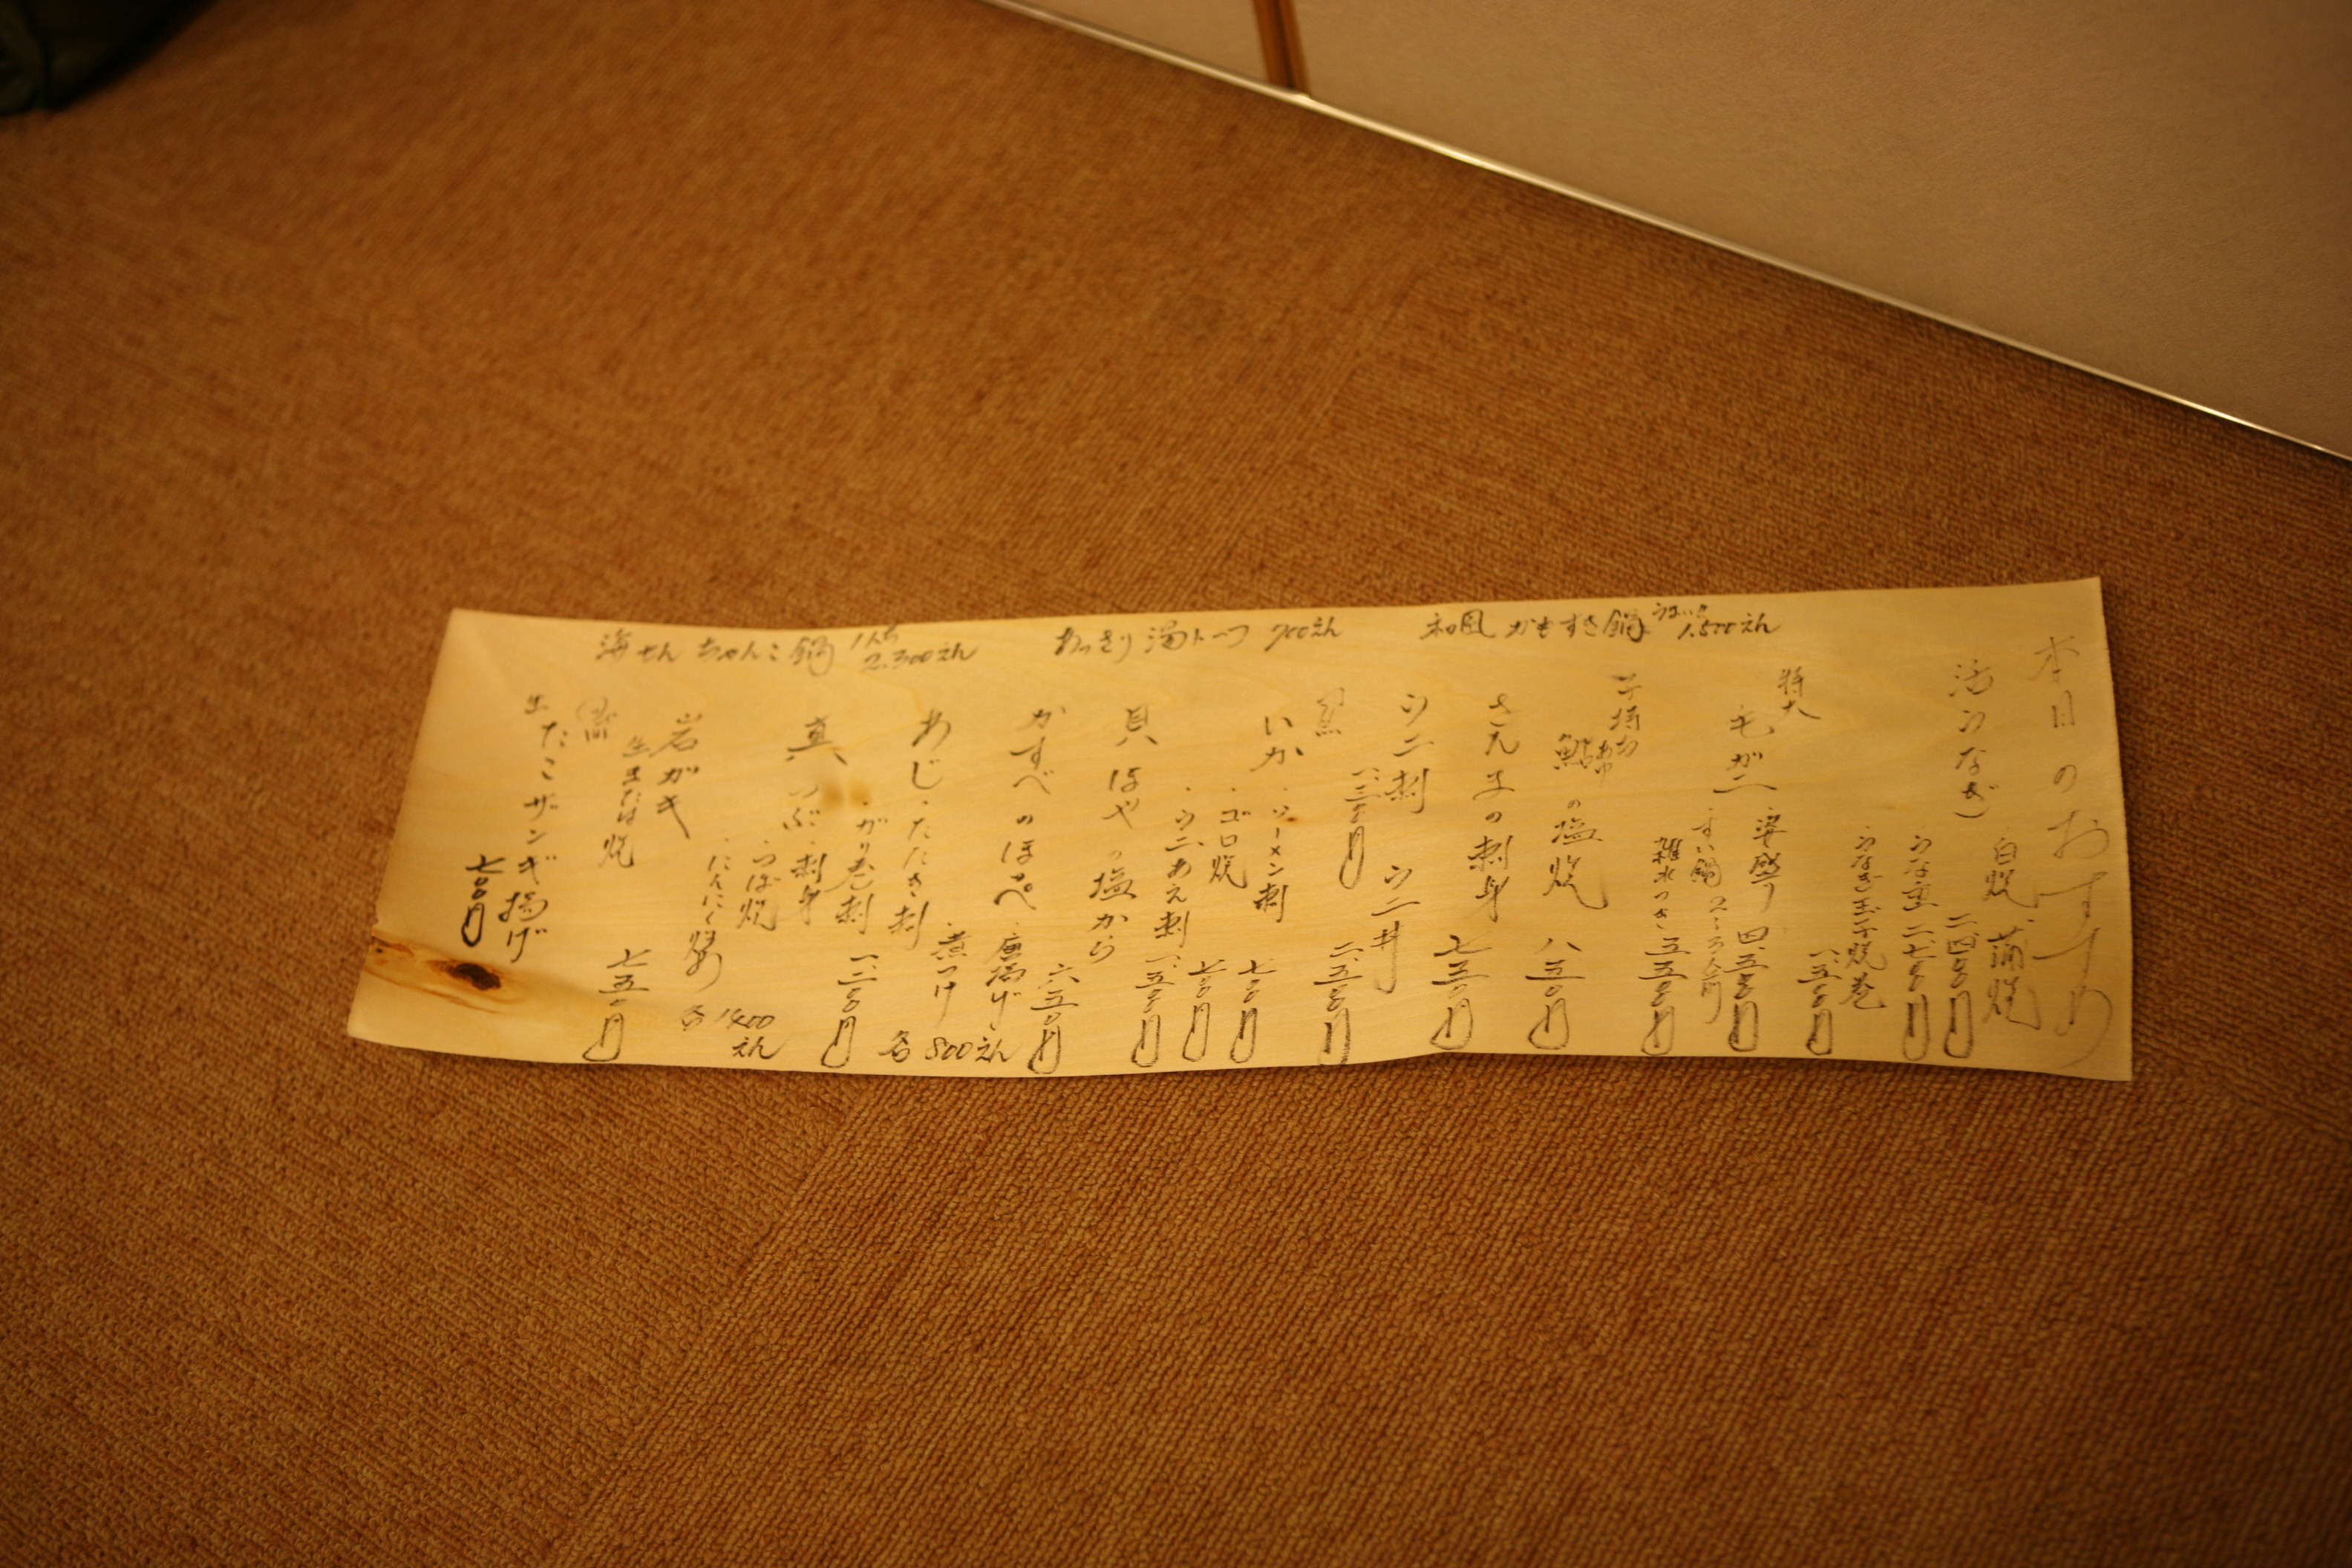 本日のおすすめ
活うなぎ 白焼 蒲焼
二、四〇〇円
うな重 二、七〇〇円
うなぎ玉子焼巻
一、五〇〇円
特大
毛ガニ 姿盛り 四、五〇〇円
すい鍋 2~3人前
雑水つき 五、五〇〇円
子持ち
鮎の塩焼 八五〇円
さんまの刺身 七五〇円
ウニ刺 ウニ丼
二、五〇〇円
いか・ソーメン刺 七〇〇円
・ゴロ焼 七〇〇円
・ウニあえ刺 一、五〇〇円
貝 ほやの塩から
六五〇円
かすべのほっぺ 唐揚げ
煮つけ 各800えん
あじ・たたき刺
・がり巻刺 一、二〇〇円
真つぶ・刺身
・つぼ焼
・にんにく焼 各1400えん
岩ガキ
生または焼 七五〇円
生たこザンギ揚げ
七〇〇円
和風 かもすき鍋 1.500えん
あっさり湯トーフ 700えん
海せんちゃんこ鍋 2.300えん